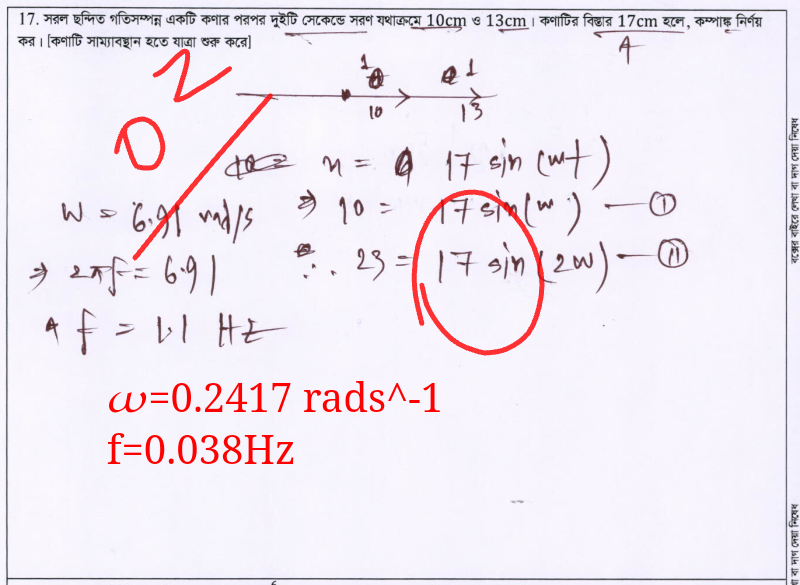 17. সরল ছন্দিত গতিসম্পন্ন একটি কণার পরপর দুইটি সেকেন্ডে সরণ যথাক্রমে 10cm ও 13cm। কণাটির বিস্তার 17cm হলে, কম্পাঙ্ক নির্ণয়
কর। [কণাটি সাম্যাবস্থান হতে যাত্রা শুরু করে]
A
1 1
10 13
0 2
x = 17 sin (wt)
w = 6.91 rad/s ⇒ 10 = 17 sin (w) — ①
⇒ 2πf = 6.91 ∴ 23 = 17 sin (2w) — ②
f = 1.1 HZ
ω=0.2417 rads^-1
f=0.038Hz
বক্সের বাইরে লেখা বা দাগ দেয়া নিষেধ
বা দাগ দেয়া নিষেধ